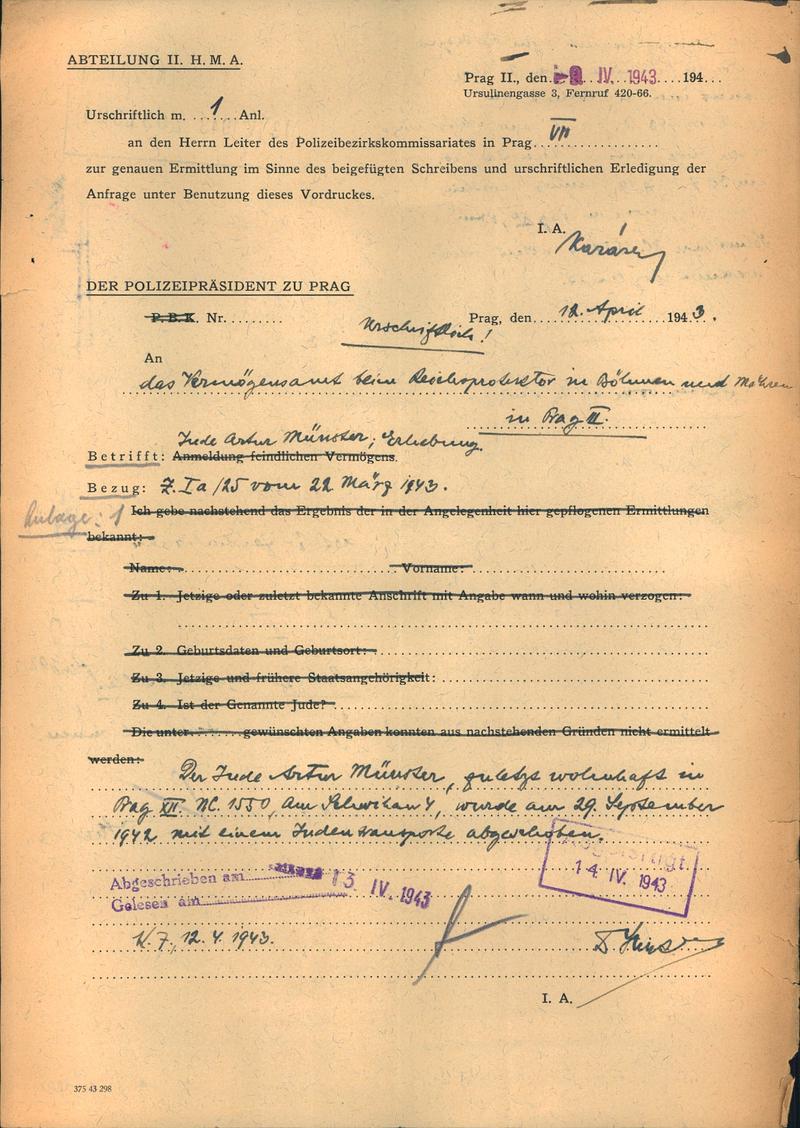 ABTEILUNG II. H. M. A.
Prag II., den 9. IV. 1943 194...
Ursulinengasse 3, Fernruf 420-66.
Urschriftlich m. ...1... Anl.
an den Herrn Leiter des Polizeibezirkskommissariates in Prag VII
zur genauen Ermittlung im Sinne des beigefügten Schreibens und urschriftlichen Erledigung der
Anfrage unter Benutzung dieses Vordruckes.
I. A.
DER POLIZEIPRÄSIDENT ZU PRAG
P.B.K. Nr. ........
Urschriftlich!
Prag, den 12. April 1943.
An
das Vermögensamt beim Reichsprotektor in Böhmen und Mähren
in Prag III.
Jude Artur Münster; Erhebung.
Betrifft: Anmeldung feindlichen Vermögens.
Bezug: Z. Ia/25 vom 22 März 1943.
Anlage: 1
Ich gebe nachstehend das Ergebnis der in der Angelegenheit hier gepflogenen Ermittlungen
bekannt:
Name: ........ Vorname: ........
Zu 1. Jetzige oder zuletzt bekannte Anschrift mit Angabe wann und wohin verzogen:
Zu 2. Geburtsdaten und Geburtsort:
Zu 3. Jetzige und frühere Staatsangehörigkeit:
Zu 4. Ist der Genannte Jude?
Die unter ........ gewünschten Angaben konnten aus nachstehenden Gründen nicht ermittelt
werden:
Der Jude Artur Münster, zuletzt wohnhaft in
Prag XII. NC. 1550, Am Schwihan 4, wurde am 29. September
1942 mit einem Judentransporte abgeschoben.
Abgeschrieben am 13. IV. 1943
Gelesen am
14. IV. 1943
K. 7, 12. 4. 1943.
I. A.
375 43 298